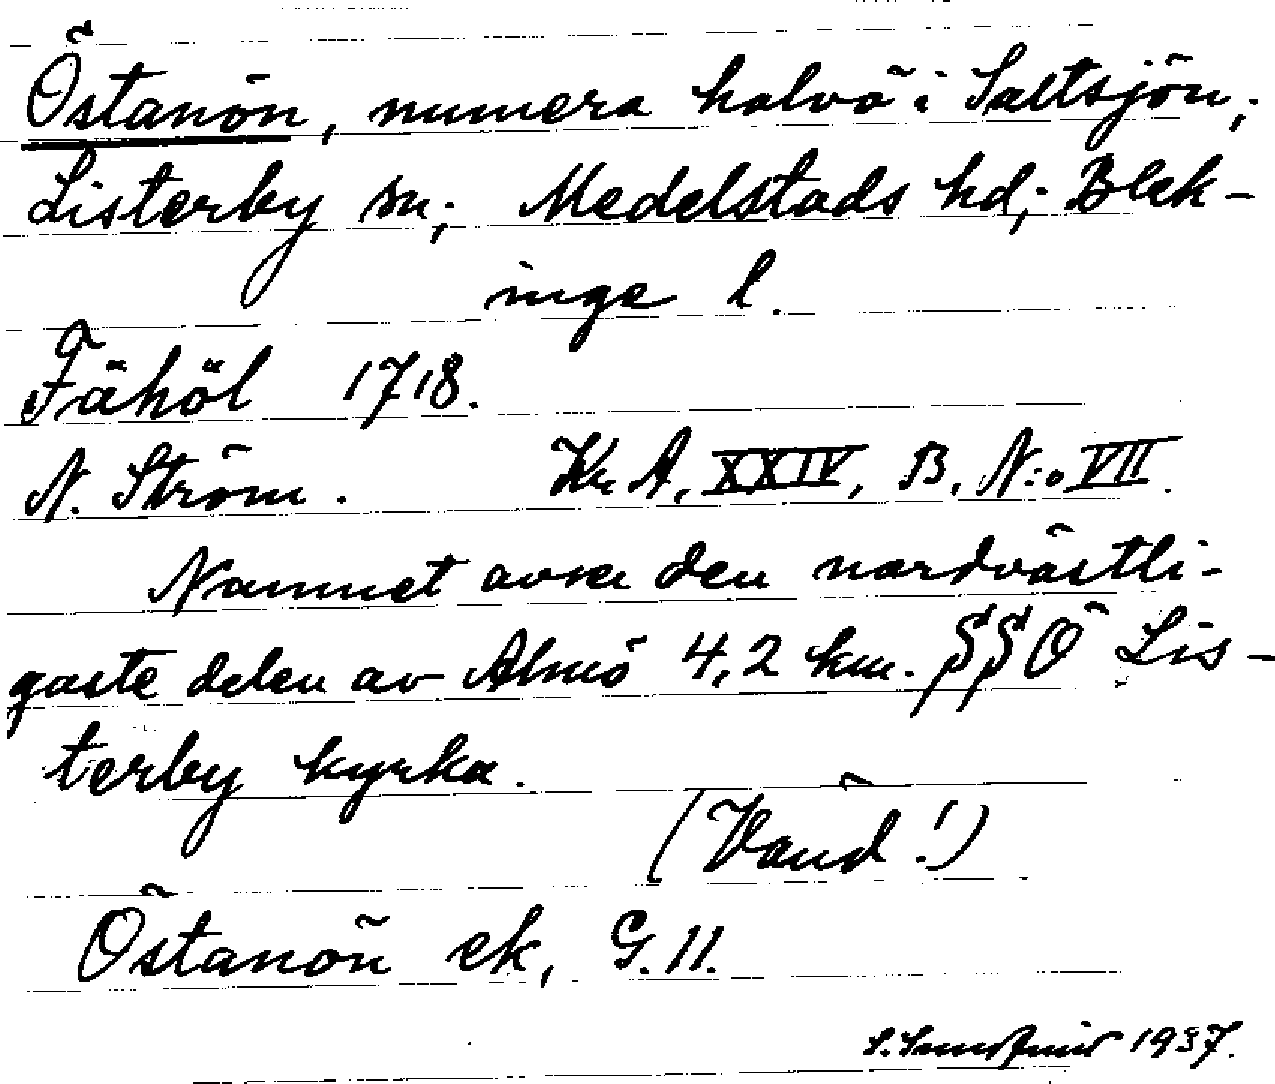 Östanön, numera halvö i Saltsjön,
Listerby sn, Medelstads hd, Blek-
inge l.
Fähöl 1718.
N. Ström. Kr A, XXIV, B. N:o VII.
Namnet avser den nordvästli-
gaste delen av Almö 4,2 km. SSÖ Lis-
terby kyrka.
(Vänd!)
Östanön ek, G.11.
1937.